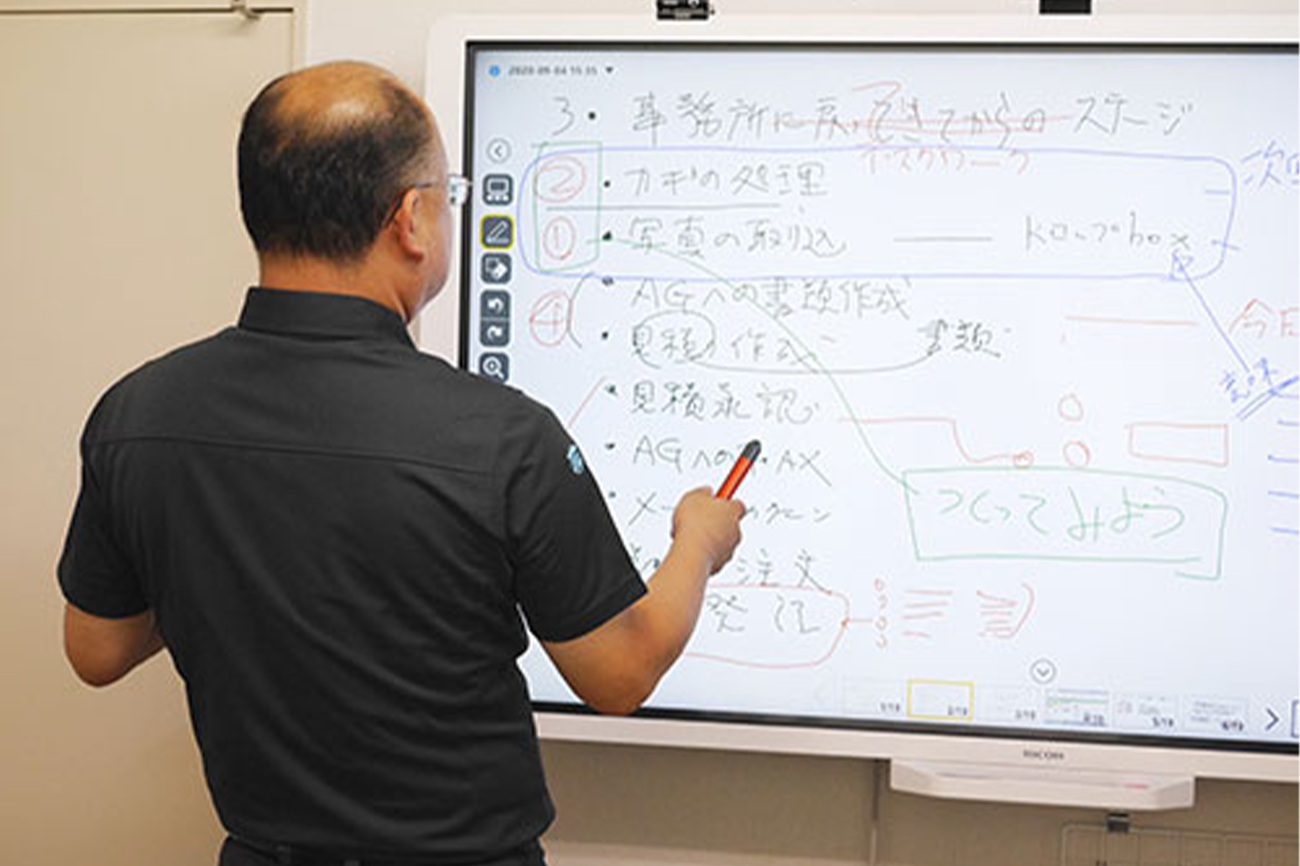 2020-09-04 15:35
3. 事務所に戻ってきてからのステージ
デスクワーク
② ・カギの処理
次回
① ・写真の取り込 ― Kロップbox
④ ・AGへの書類作成
・見積り作成 書類
今日
・見積承認
・AGへの ・AX
つくってみよう
注文
発注
RICOH